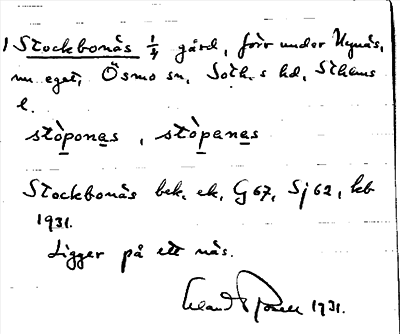 1 Stockbonäs 1/4 gård, förr under Nynäs,
nu eget, Ösmo sn, Soth.s hd, Sthms
l.
stòponas, stòpanas
Stockbonäs bek. ek, G 67, Sj 62, kb
1931.
Ligger på ett näs.
1931.